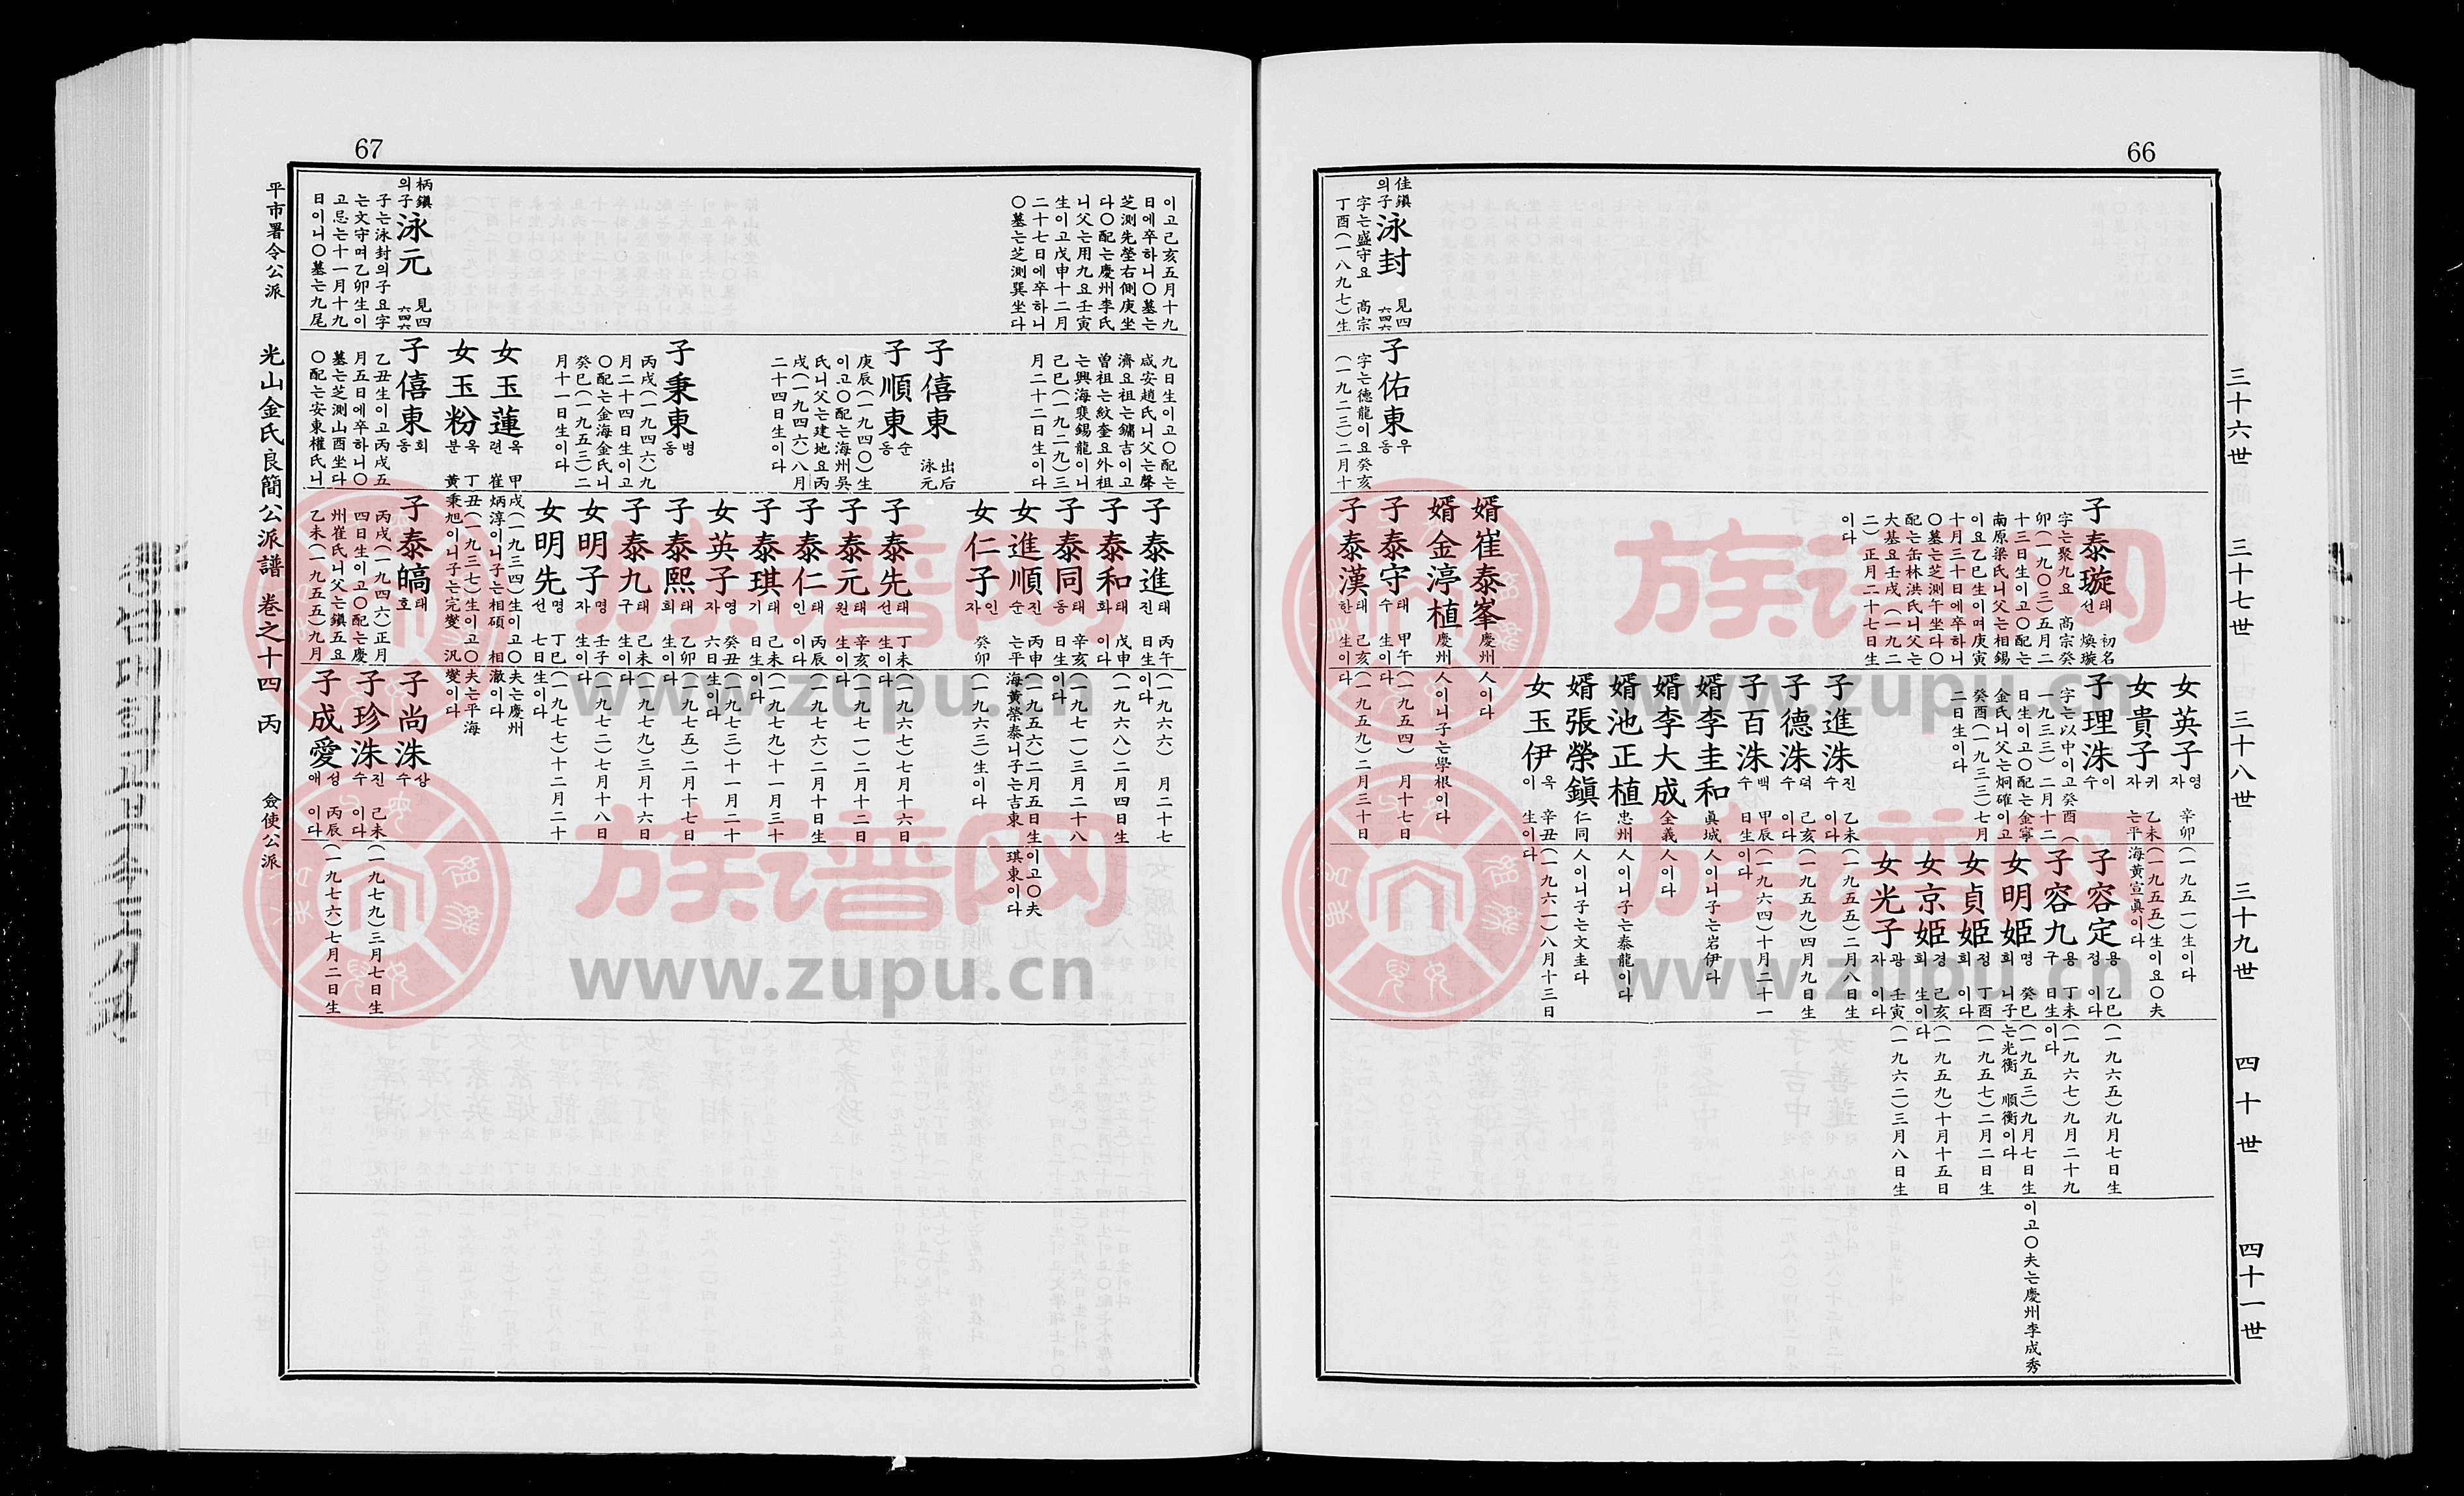 66
三十六世
三十七世
三十八世
三十九世
四十世
四十一世
女英子 영자 辛卯(一九五一)生이다
女貴子 귀자 乙未(一九五五)生이요○夫
는平海黃宣眞이다
子泰璇 태선 初名煥璇
字는聚九요 高宗癸
卯(一九○三)五月二
十三日生이고○配는
南原梁氏니父는相錫
이요乙巳生이며庚寅
十月三十日에卒하니
○墓는芝測午坐다○
配는缶林洪氏니父는
大基요壬戌(一九二
二)正月二十七日生
이다
子理洙 이수
字는以中이고癸酉(
一九三三)二月十二
日生이고○配는金寧
金氏니父는炯確이고
癸酉(一九三三)七月
二日生이다
子容定 용정 乙巳(一九六五)九月七日生
이다
子容九 용구 丁未(一九六七)九月二十九
日生이다
女明姬 명희 癸巳(一九五三)九月七日生이고○夫는慶州李成秀
니子는光衡 順衡이다
女貞姬 정희 丁酉(一九五七)二月二日生
이다
女京姬 경희 己亥(一九五九)十月十五日
生이다
女光子 광자 壬寅(一九六二)三月八日生
이다
子進洙 진수 乙未(一九五五)二月八日生
이다
子德洙 덕수 己亥(一九五九)四月九日生
이다
子百洙 백수 甲辰(一九六四)十月二十一
日生이다
婿李圭和 眞城人이니子는岩伊다
婿李大成 全義人이다
婿池正植 忠州人이니子는泰龍이다
婿張榮鎭 仁同人이니子는文圭다
女玉伊 옥이 辛丑(一九六一)八月十三日
生이다
婿崔泰峯 慶州人이다
婿金渟植 慶州人이니子는學根이다
佳鎭의子 泳封 見四六四六
字는盛守요 高宗
丁酉(一八九七)生
子佑東 우동
字는德龍이요癸亥
(一九二三)二月十
子泰守 태수 甲午(一九五四) 月十七日
生이다
子泰漢 태한 己亥(一九五九)二月三十日
生이다
67
이고己亥五月十九
日에卒하니○墓는
芝測先塋右側庚坐
다○配는慶州李氏
니父는用九요壬寅
生이고戊申十二月
二十七日에卒하니
○墓는芝測巽坐다
九日生이고○配는
咸安趙氏니父는聲
濟요祖는鏞吉이고
曾祖는紋奎요外祖
는興海裵錫龍이니
己巳(一九二九)三
月二十二日生이다
子泰進 태진 丙午(一九六六) 月二十七
日生이다
子泰和 태화 戊申(一九六八)二月四日生
이다
子泰同 태동 辛亥(一九七一)三月二十八
日生이다
女進順 진순 丙申(一九五六)二月五日生이고○夫
는平海黃榮泰니子는吉東 琪東이다
女仁子 인자 癸卯(一九六三)生이다
子僖東 出后泳元
子順東 순동
庚辰(一九四○)生
이고○配는海州吳
氏니父는建地요丙
戌(一九四六)八月
二十四日生이다
子泰先 태선 丁未(一九六七)七月十六日
生이다
子泰元 태원 辛亥(一九七一)二月十二日
生이다
子泰仁 태인 丙辰(一九七六)二月十日生
이다
子泰琪 태기 己未(一九七九)十一月三十
日生이다
女英子 영자 癸丑(一九七三)十一月二十
六日生이다
子秉東 병동
丙戌(一九四六)九
月二十四日生이고
○配는金海金氏니
癸巳(一九五三)二
月十一日生이다
子泰熙 태희 乙卯(一九七五)二月十七日
生이다
子泰九 태구 己未(一九七九)三月十六日
生이다
女明子 명자 壬子(一九七二)七月十八日
生이다
女明先 명선 丁巳(一九七七)十二月二十
七日生이다
女玉蓮 옥련 甲戌(一九三四)生이고○夫는慶州
崔炳淳이니子는相碩 相澈이다
女玉粉 옥분 丁丑(一九三七)生이고○夫는平海
黃秉旭이니子는完燮 汎燮이다
柄鎭의子 泳元 見四六四六
子는泳封의子요字
는文守며乙卯生이
고忌는十一月十九
日이니○墓는九尾
子僖東 희동
乙丑生이고丙戌五
月五日에卒하니○
墓는芝測山酉坐다
○配는安東權氏니
子泰皜 태호
丙戌(一九四六)正月
四日生이고○配는慶
州崔氏니父는鎭五요
乙未(一九五五)九月
子尚洙 상수
子珍洙 진수 己未(一九七九)三月七日生
이다
子成愛 성애 丙辰(一九七六)七月二日生
이다
平市署令公派 光山金氏良簡公派譜 卷之十四 丙 僉使公派
族谱网
www.zupu.cn
族谱网
www.zupu.cn
族谱网
www.zupu.cn
族谱网
www.zupu.cn